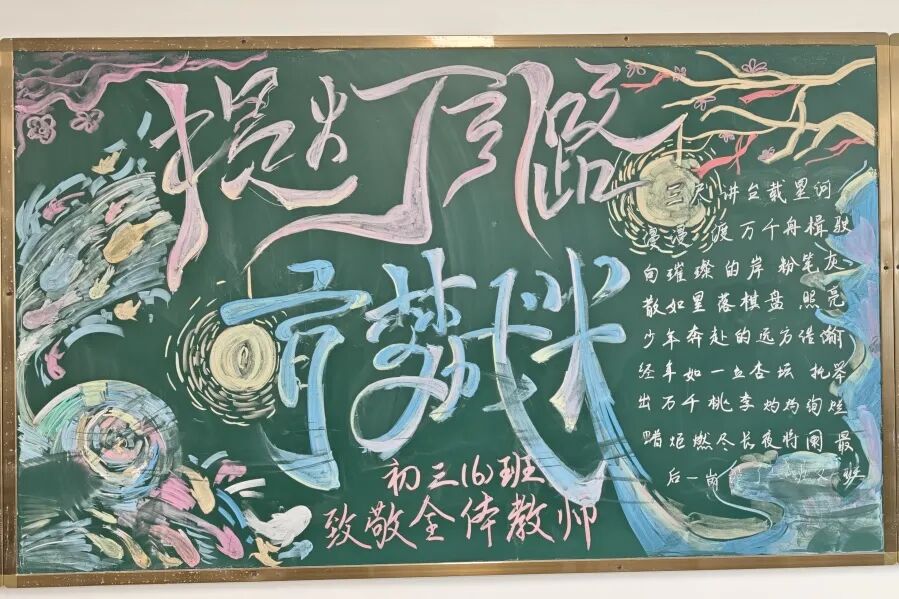 提灯引路
育梦成光
三尺讲台载星河
漫漫 渡万千舟楫驶
向璀璨的岸 粉笔灰
散如星落棋盘 照亮
少年奔赴的远方
经年如一立杏坛 托举
出万千桃李灼灼绚烂
蜡炬燃尽长夜将阑 最
后一岗
初三(6)班
致敬全体教师